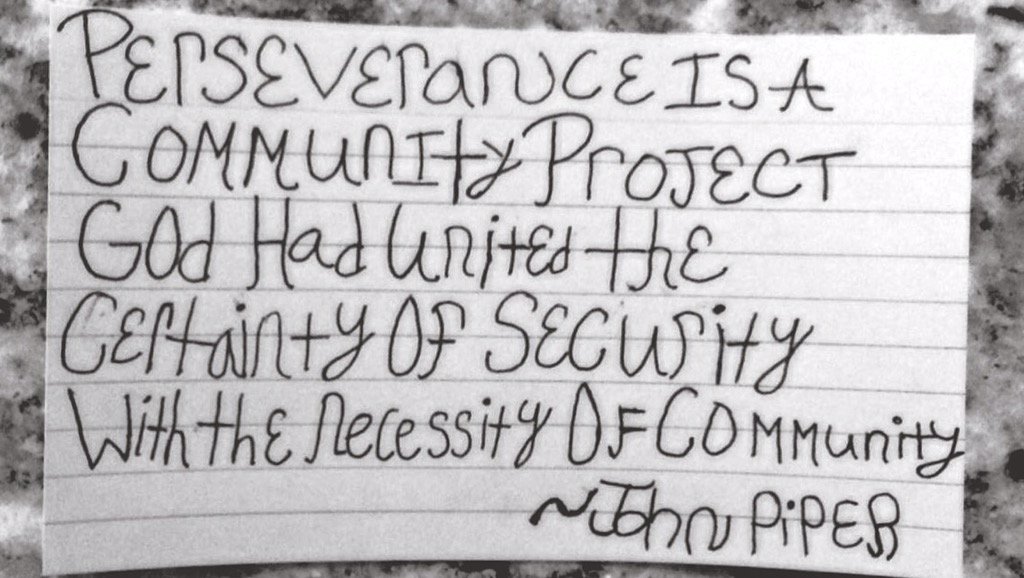 PERSEVERANCE IS A
COMMUNITY PROJECT
GOd Had United thE
CERtainty OF SECURity
With thE NecessitY OF COMMunity
~John PiPER